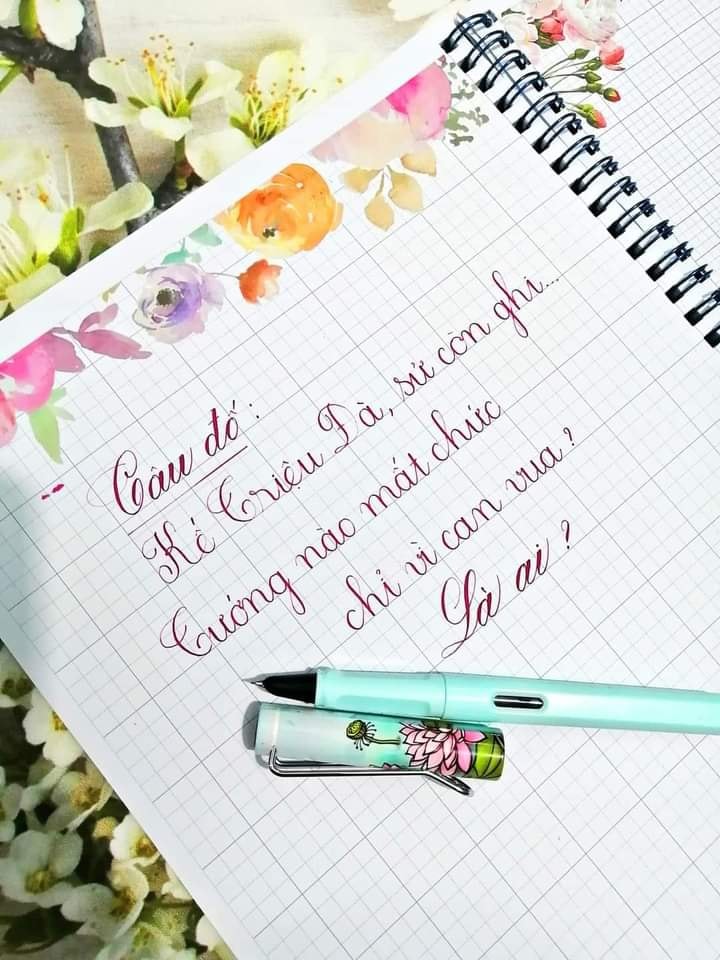 Câu đố:
Kế Triệu Đà, sử còn ghi...
Tướng nào mất chức
chỉ vì can vua?
Là ai?